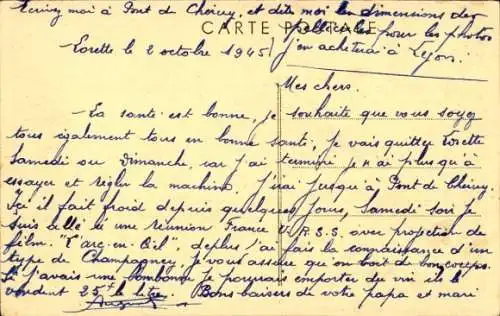 Ecrivez moi à Pont de Chéruy, et dite moi les dimensions des
CARTE POSTALE
pour les photos
j'en achèterai à Lyon.
Lorette le 2 octobre 1945
Mes chers.
La santé est bonne, je souhaite que vous soyez
tous également tous en bonne santé, Je vais quitter Lorette
Samedi ou Dimanche, car J'ai terminé je n'ai plus qu'à
essayer et régler la machine. J'irai jusqu'à Pont de Chéruy.
Ici il fait froid depuis quelques jours, Samedi soir Je
suis allé à une réunion France U.R.S.S. avec projection de
film. "L'arc en Ciel", de plus J'ai fais la connaissance d'un
type de Champagney, je vous assure qu'on boit de bon coups.
Si J'avais une bombonne je pourrais emporter du vin ils le
vendent 25f le litre. Bons baisers de votre papa et mari